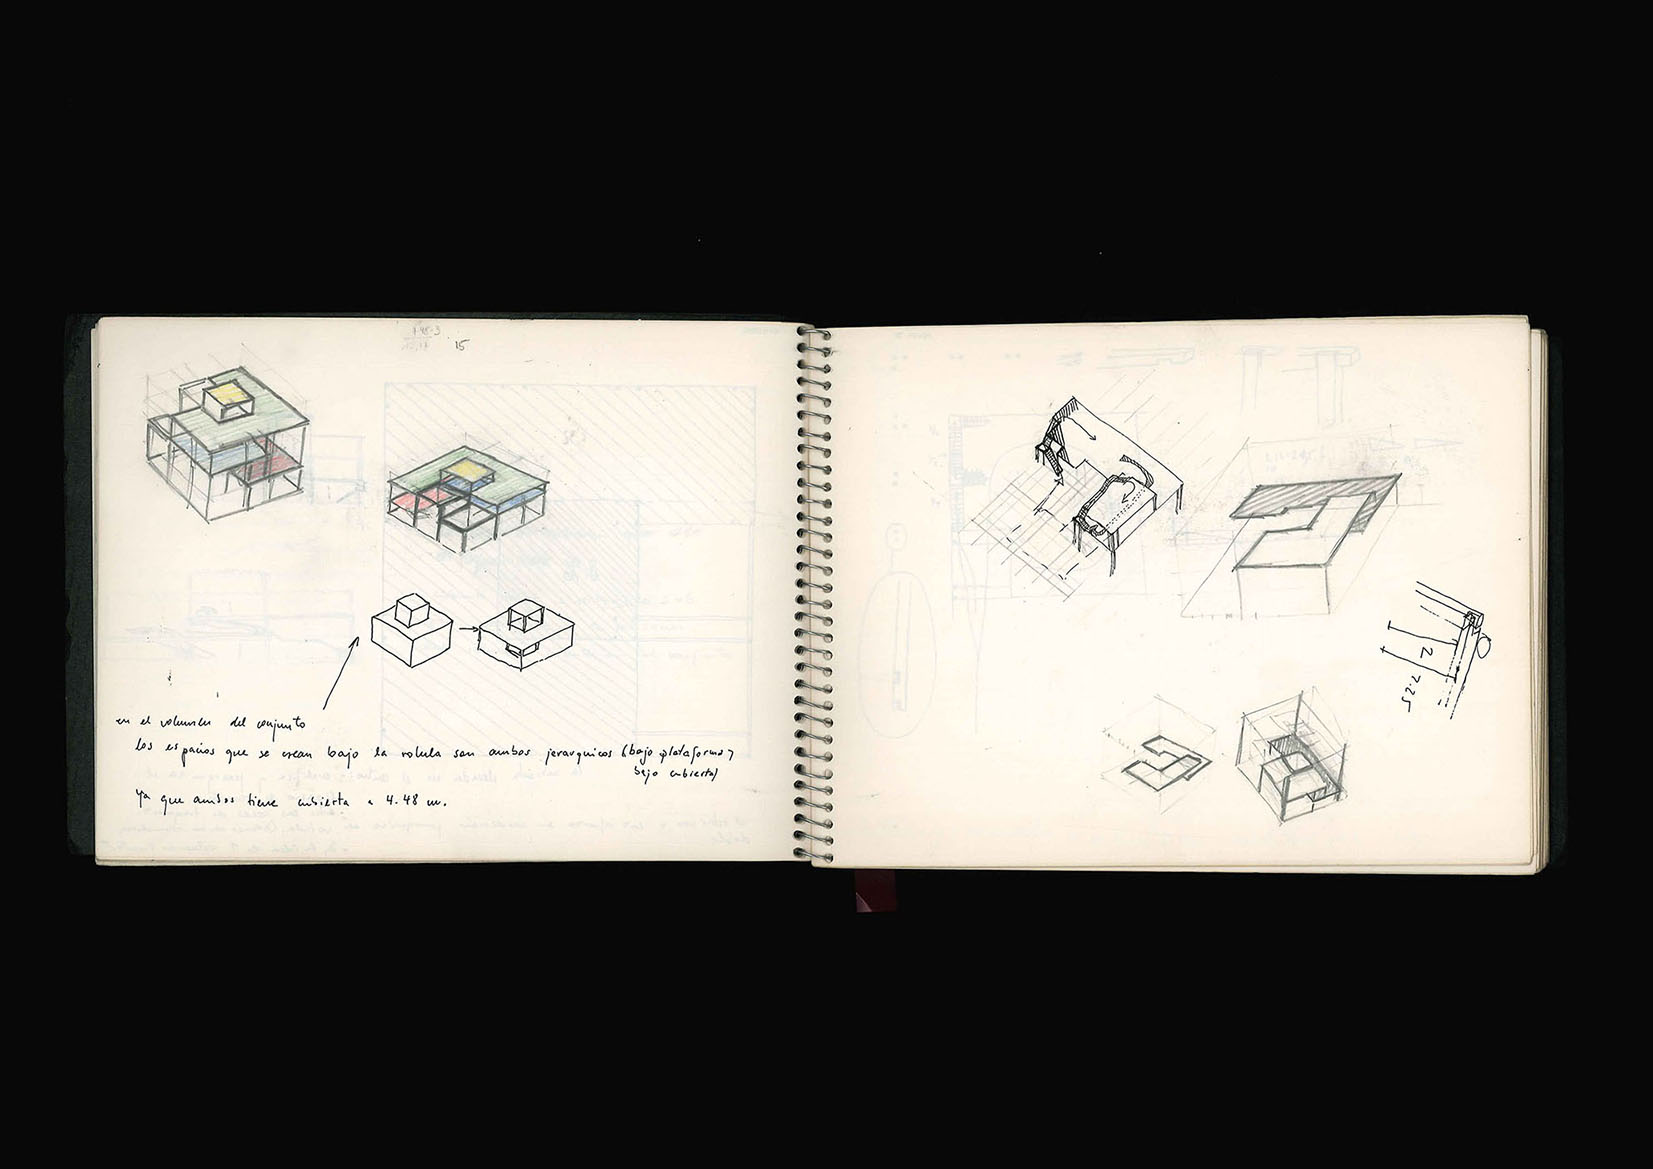 15
en el volumen del conjunto
los espacios que se crean bajo la rotula son ambos jerarquicos (bajo plataforma y
bajo cubierta)
Ya que ambos tiene cubierta a 4.48 m.
2
2.25